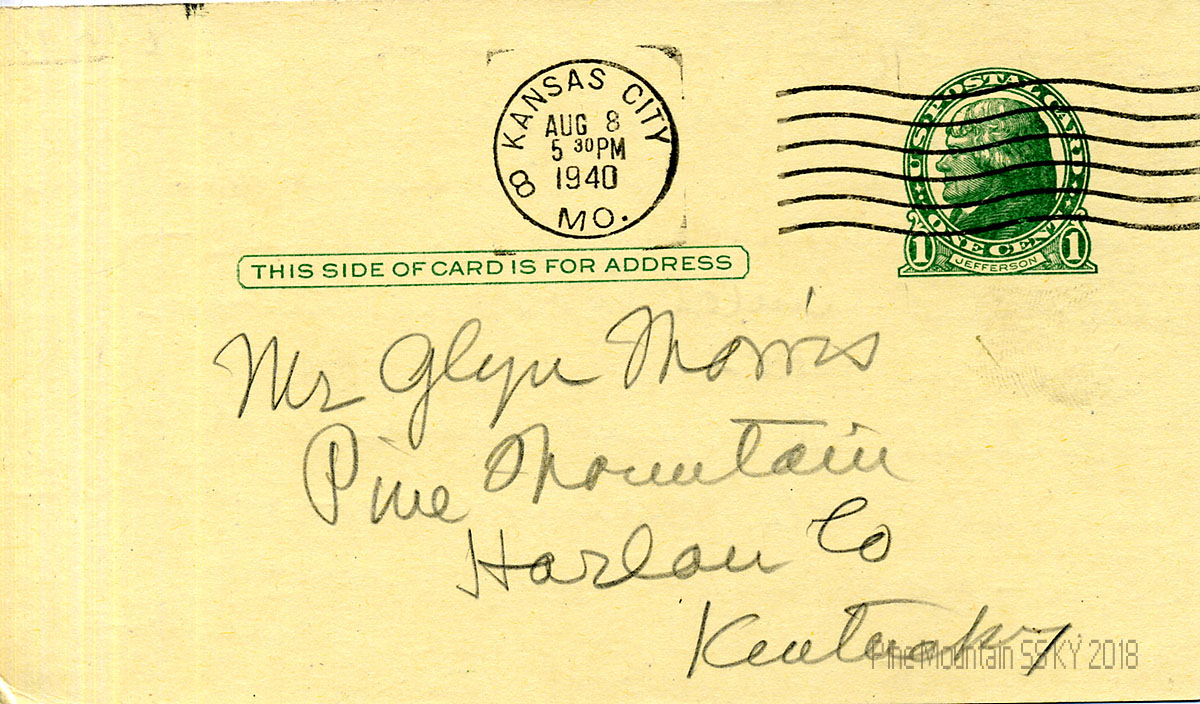 KANSAS CITY
AUG 8
5 30 PM
1940
8
MO.
U.S. POSTAL CARD
ONE CENT
1 JEFFERSON 1
THIS SIDE OF CARD IS FOR ADDRESS
Mr Glyn Morris
Pine Mountain
Harlan Co
Kentucky
Pine Mountain SS KY 2018